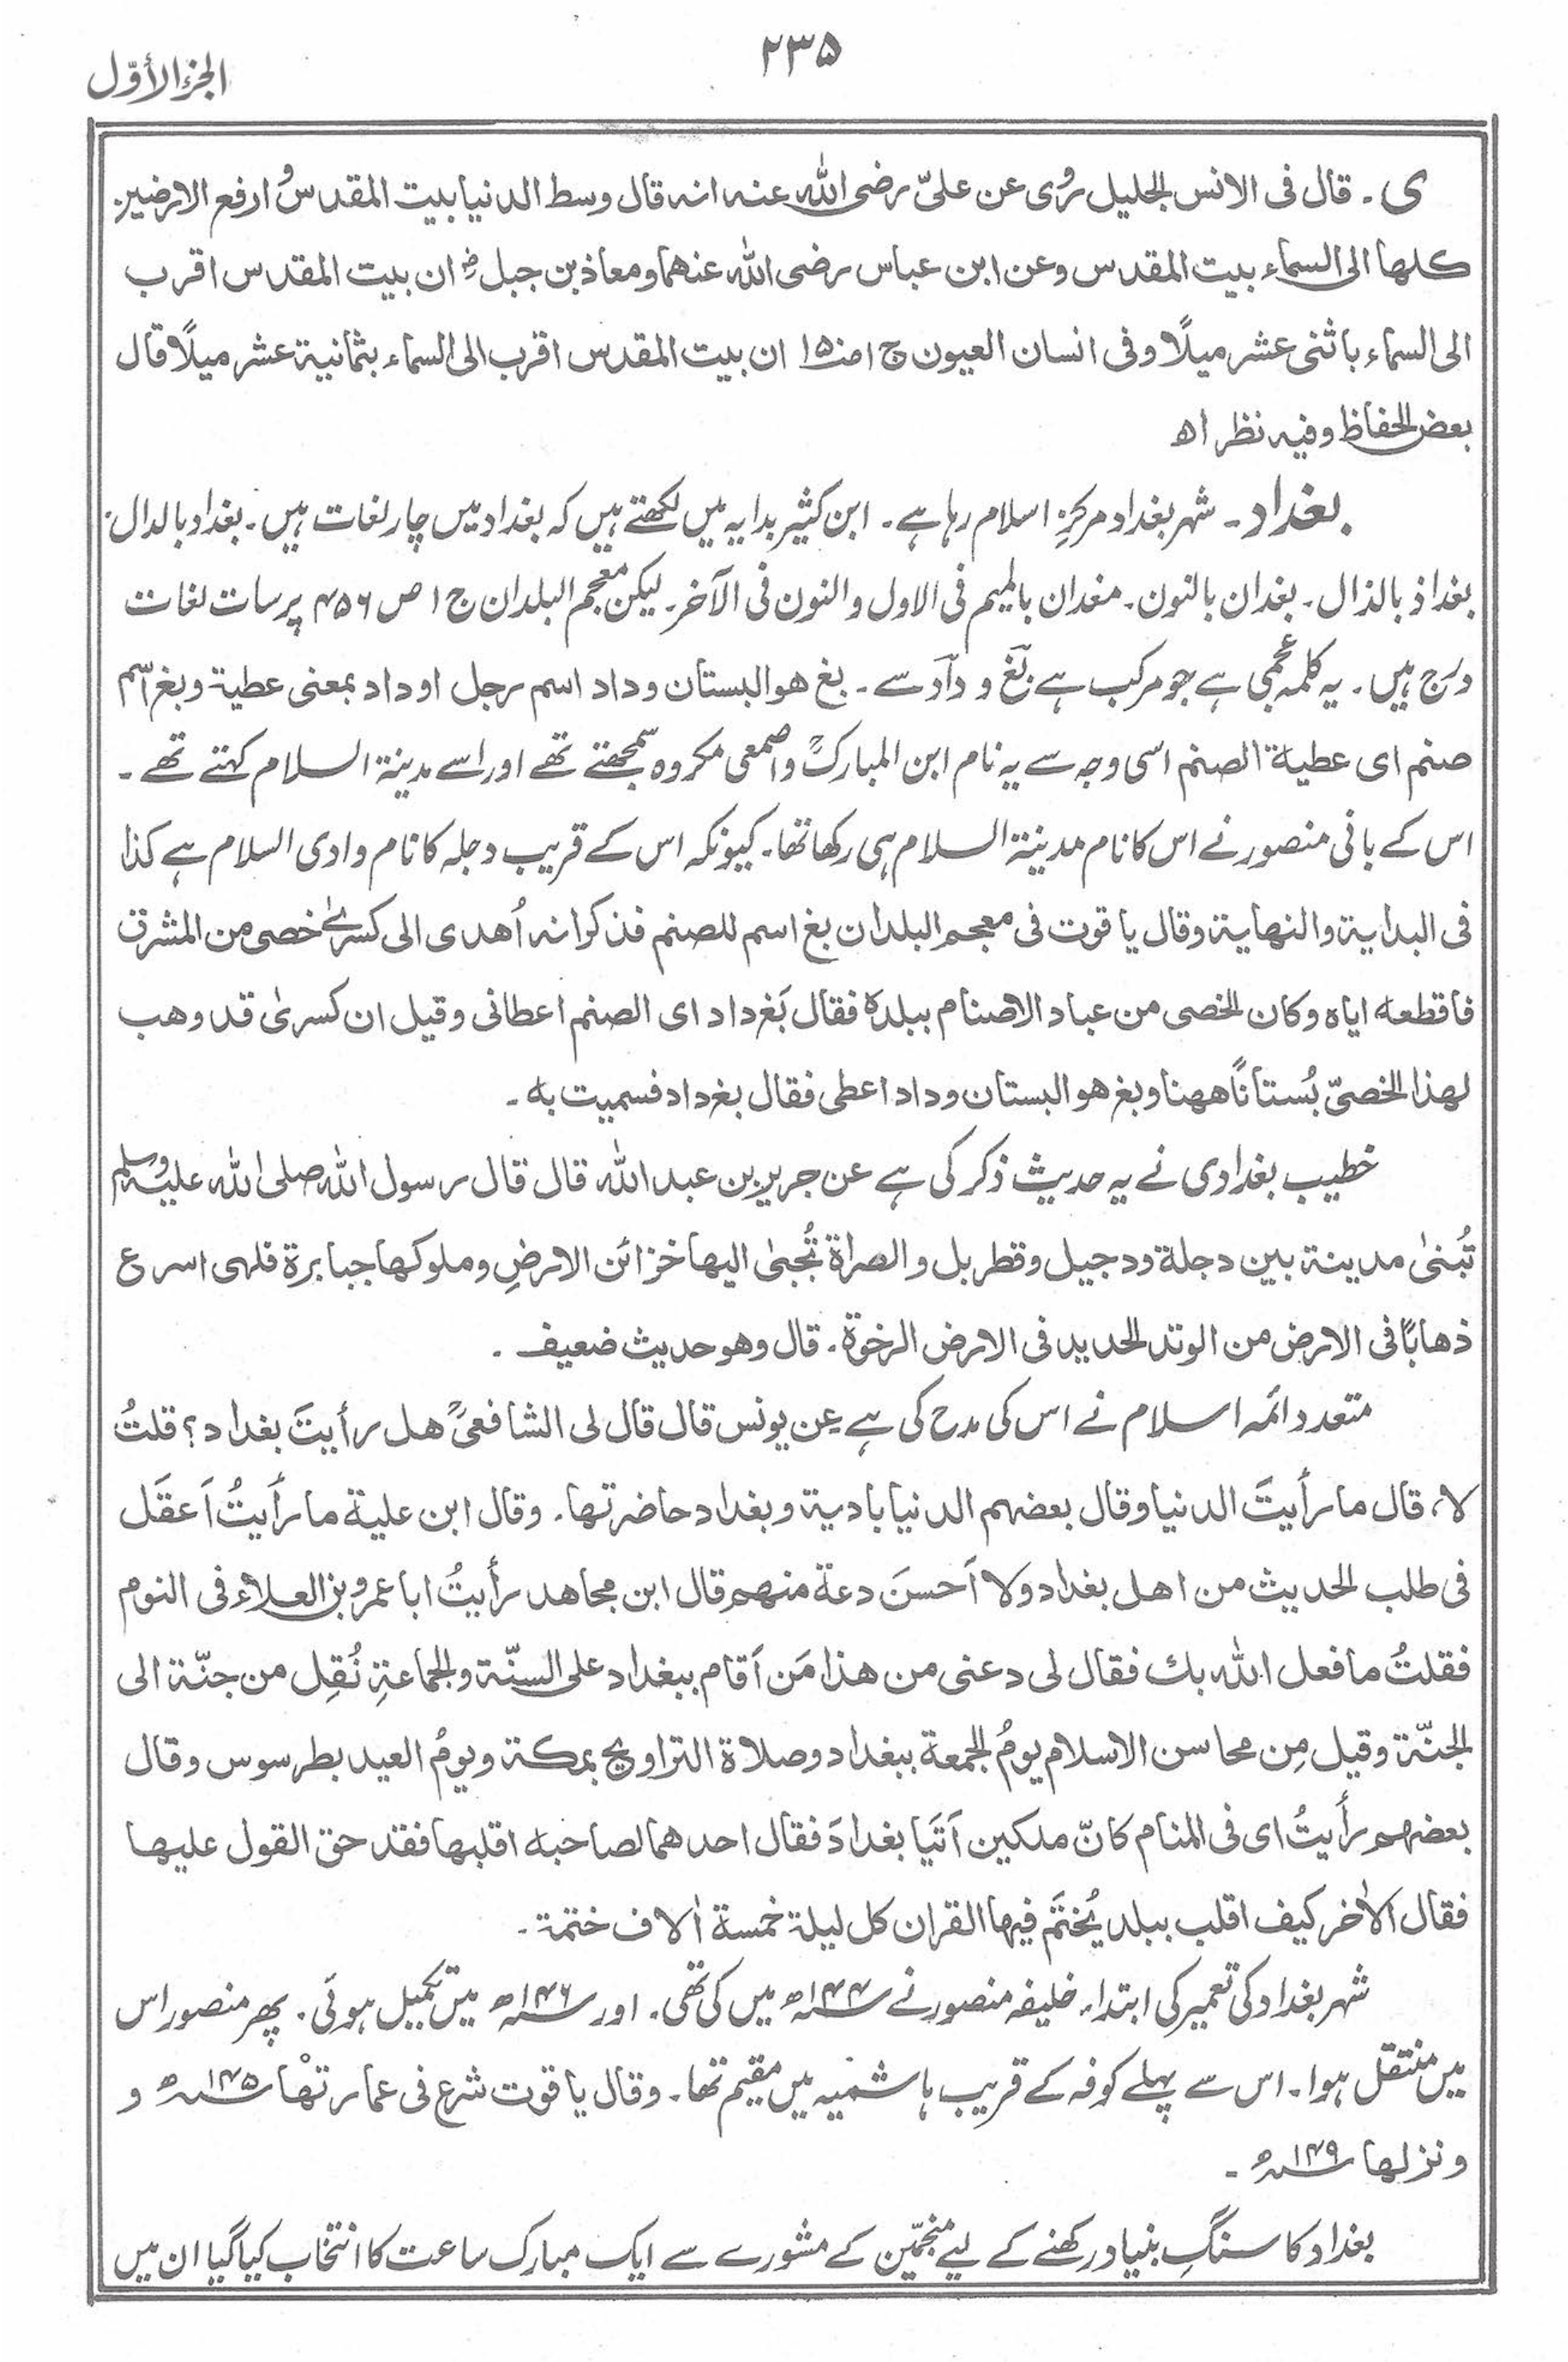 ۲۳۵
الجزء الأوّل
ی ۔ قال فی الانس الجلیل رُوی عن علیّ رضی اللہ عنہ انہ قال وسط الدنیا بیت المقدس وارفع الارضین
کلھا الی السماء بیت المقدس وعن ابن عباس رضی اللہ عنھما ومعاذ بن جبل رضؓ ان بیت المقدس اقرب
الی السماء باثنی عشر میلًا وفی انسان العیون ج۱ ص۱۵ ان بیت المقدس اقرب الی السماء بثمانیۃ عشر میلًا قال
بعض الحفاظ وفیہ نظر اھ
بغداد ۔ شہر بغداد مرکزِ اسلام رہا ہے ۔ ابن کثیر بدایہ میں لکھتے ہیں کہ بغداد میں چار لغات ہیں ۔ بغداد بالدال ۔
بغداذ بالذال ۔ بغدان بالنون ۔ مغدان بالمیم فی الاول والنون فی الآخر ۔ لیکن معجم البلدان ج ۱ ص ۴۵۶ پر سات لغات
درج ہیں ۔ یہ کلمہ عجمی ہے جو مرکب ہے بَغ و داد سے ۔ بغ ھو البستان وداد اسم رجل او داد بمعنی عطیۃ وبغ اسم
صنم ای عطیۃ الصنم اسی وجہ سے یہ نام ابن المبارکؒ واصمعی مکروہ سمجھتے تھے اور اسے مدینۃ السلام کہتے تھے ۔
اس کے بانی منصور نے اس کا نام مدینۃ السلام ہی رکھا تھا ۔ کیونکہ اس کے قریب دجلہ کا نام وادی السلام ہے کذا
فی البدایۃ والنھایۃ وقال یاقوت فی معجم البلدان بغ اسم للصنم فذکر انہ اُھدی الی کسریٰ خصی من المشرق
فاقطعہ ایاہ وکان الخصی من عباد الاصنام ببلدہ فقال بَغ داد ای الصنم اعطانی وقیل ان کسریٰ قد وھب
لھذا الخصیّ بُستانًا ھھنا وبغ ھو البستان وداد اعطی فقال بغ داد فسمیت بہ ۔
خطیب بغدادی نے یہ حدیث ذکر کی ہے عن جریر بن عبد اللہ قال قال رسول اللہ صلی اللہ علیہ وسلم
تُبنیٰ مدینۃ بین دجلۃ ودجیل وقطربل والصراۃ تُجبیٰ الیھا خزائن الارضِ وملوکھا جبابرۃ فلھی اسرع
ذھابًا فی الارض من الوتد الحدید فی الارض الرخوۃ ۔ قال وھو حدیث ضعیف ۔
متعدد ائمہ اسلام نے اس کی مدح کی ہے عن یونس قال قال لی الشافعیؒ ھل رأیتَ بغداد ؟ قلتُ
لا، قال ما رأیتَ الدنیا وقال بعضھم الدنیا بادیۃ وبغداد حاضرتھا ۔ وقال ابن علیۃ ما رأیتُ اَعقَل
فی طلب الحدیث من اھل بغداد ولا اَحسنَ دعۃ منھم قال ابن مجاھد رأیتُ ابا عمرو بن العلاء فی النوم
فقلتُ ما فعل اللہ بك فقال لی دعنی من ھذا مَن اَقام ببغداد علی السنّۃ والجماعۃِ نُقِل من جنّۃ الی
الجنّۃ وقیل مِن محاسن الاسلام یومُ الجمعۃ ببغداد وصلاۃ التراویح بمکۃ ویومُ العید بطرسوس وقال
بعضھم رأیتُ ای فی المنام کانّ ملکین اَتَیا بغدادَ فقال احدھما لصاحبہ اقلبھا فقد حق القول علیھا
فقال الآخر کیف اقلب ببلد یُختَم فیھا القراٰن کل لیلۃ خمسۃ اٰلاف ختمۃ ۔
شہر بغداد کی تعمیر کی ابتداء خلیفہ منصور نے سنہ ۱۴۴ھ میں کی تھی ۔ اور سنہ ۱۴۶ھ میں تکمیل ہوئی ۔ پھر منصور اس
میں منتقل ہوا ۔ اس سے پہلے کوفہ کے قریب ہاشمیہ میں مقیم تھا ۔ وقال یاقوت شرع فی عمارتھا سنہ ۱۴۵ھ و
ونزلھا سنہ ۱۴۹ھ ۔
بغداد کا سنگِ بنیاد رکھنے کے لیے منجّمین کے مشورے سے ایک مبارک ساعت کا انتخاب کیا گیا ان میں